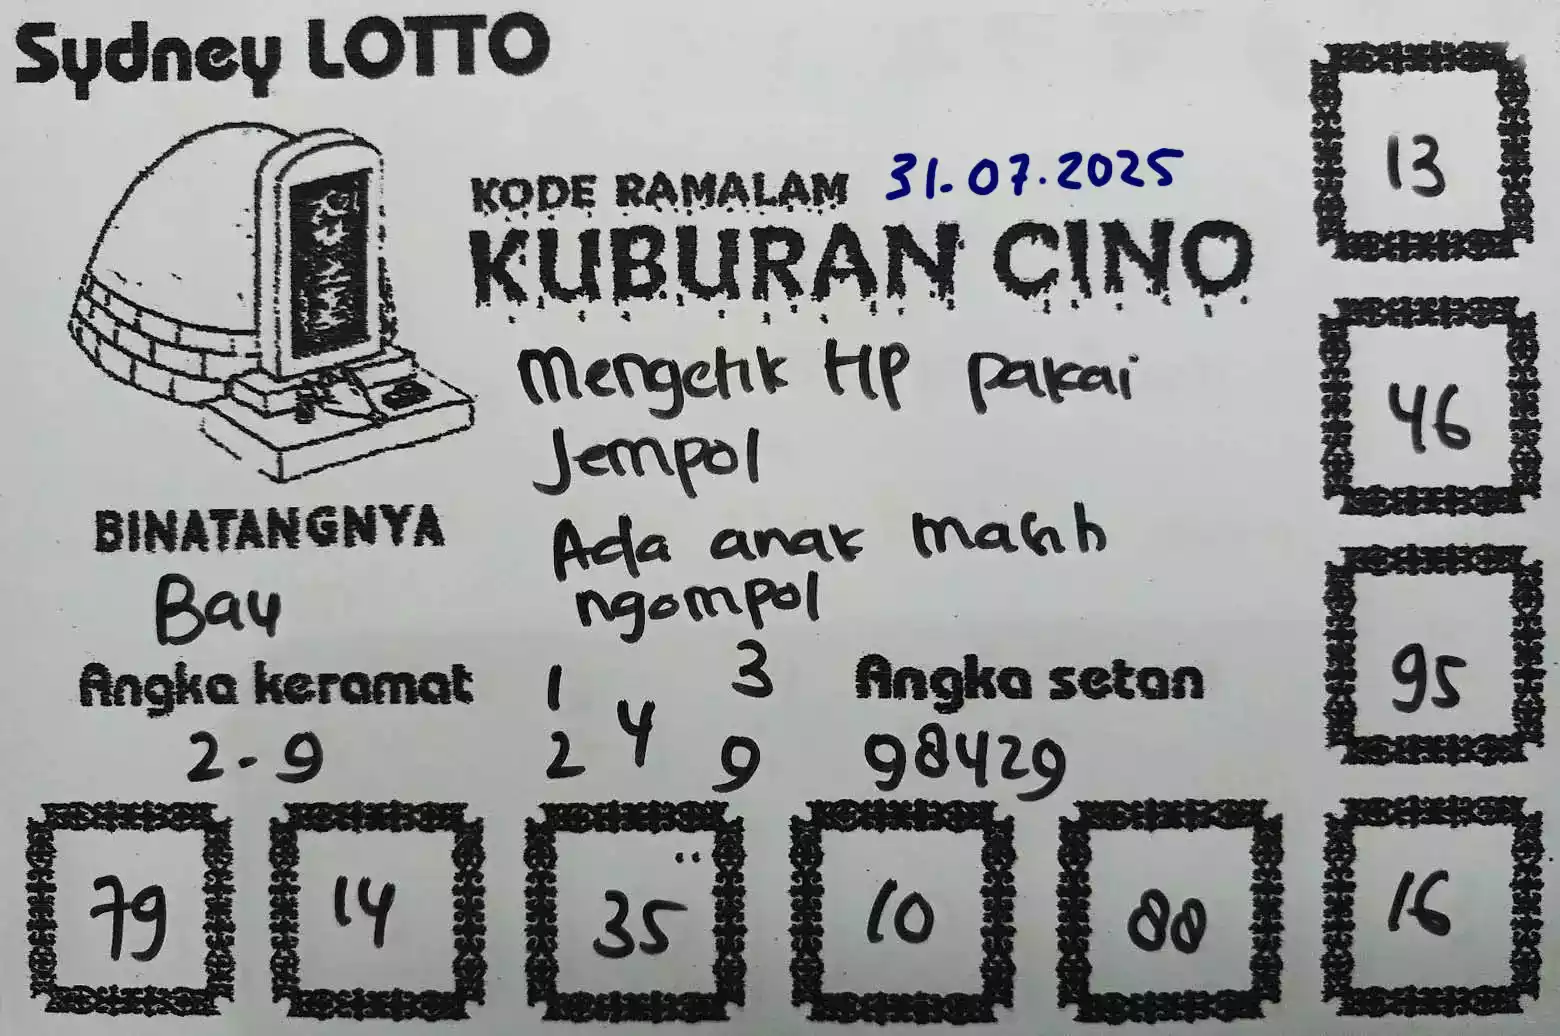 Sydney LOTTO
KODE RAMALAM 31.07.2025
KUBURAN CINO
Mengetik HP pakai
Jempol
Ada anak masih
ngompol
BINATANGNYA
Bau
Angka keramat
2-9
1 3
4
2 9
Angka setan
98429
13
46
95
79 14 35 10 88 16